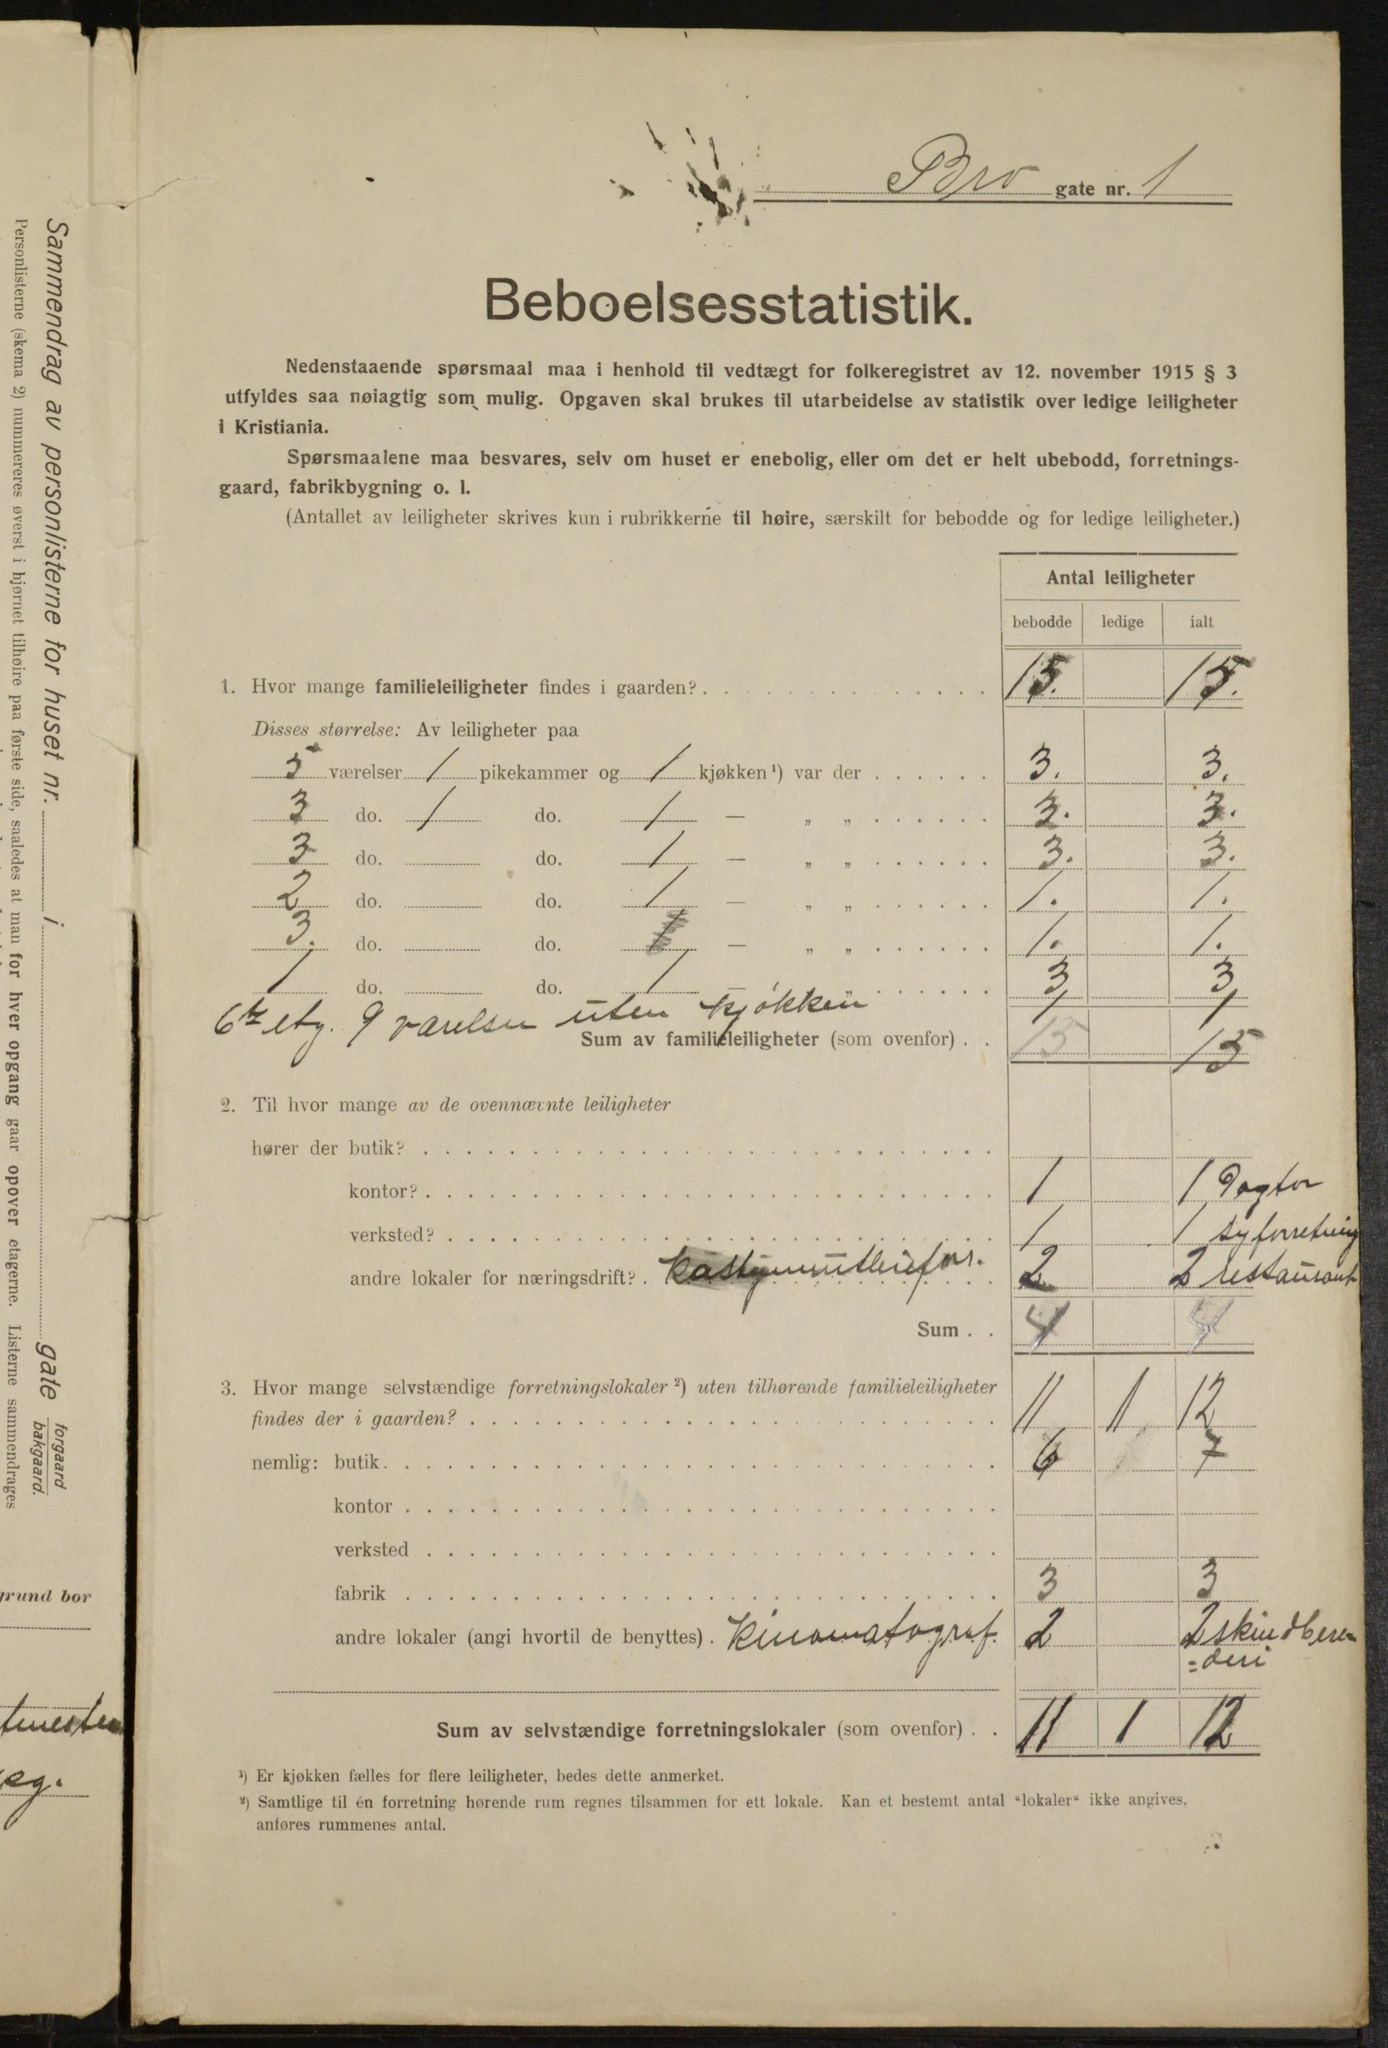 Bro gate nr. 1
Beboelsesstatistik.
Nedenstaaende spørsmaal maa i henhold til vedtægt for folkeregistret av 12. november 1915 § 3
utfyldes saa nøiagtig som mulig. Opgaven skal brukes til utarbeidelse av statistik over ledige leiligheter
i Kristiania.
Spørsmaalene maa besvares, selv om huset er enebolig, eller om det er helt ubebodd, forretnings-
gaard, fabrikbygning o. l.
(Antallet av leiligheter skrives kun i rubrikkerne til høire, særskilt for bebodde og for ledige leiligheter.)
Antal leiligheter
bebodde ledige ialt
1. Hvor mange familieleiligheter findes i gaarden? 15. 15.
Disses størrelse: Av leiligheter paa
5 værelser 1 pikekammer og 1 kjøkken ¹) var der 3. 3.
3 do. 1 do. 1 — „ „ 3. 3.
3 do. do. 1 — „ „ 3. 3.
2 do. do. 1 — „ „ 1. 1.
3. do. do. 1 — „ „ 1. 1.
1 do. do. 1 „ 3 3
6te etg. 9 værelser uten kjøkken 1 1
Sum av familieleiligheter (som ovenfor) 15 15
2. Til hvor mange av de ovennævnte leiligheter
hører der butik?
kontor? 1 1 Dogtor
verksted? 1 1 syforretning
andre lokaler for næringsdrift? Kostymutleiefor. 2 2 restaurant
Sum 4 4
3. Hvor mange selvstændige forretningslokaler ²) uten tilhørende familieleiligheter
findes der i gaarden? 11 1 12
nemlig: butik 6 1 7
kontor
verksted
fabrik 3 3
andre lokaler (angi hvortil de benyttes) Kinomatograf. 2 2 skindberen
=deri
Sum av selvstændige forretningslokaler (som ovenfor) 11 1 12
¹) Er kjøkken fælles for flere leiligheter, bedes dette anmerket.
²) Samtlige til én forretning hørende rum regnes tilsammen for ett lokale. Kan et bestemt antal “lokaler“ ikke angives,
anføres rummenes antal.
Sammendrag av personlisterne for huset nr. i gate forgaard bakgaard.
Personlisterne (skema 2) nummereres øverst i hjørnet tilhøire paa første side, saaledes at man for hver opgang gaar opover etagerne. Listerne sammendrages
grund bor